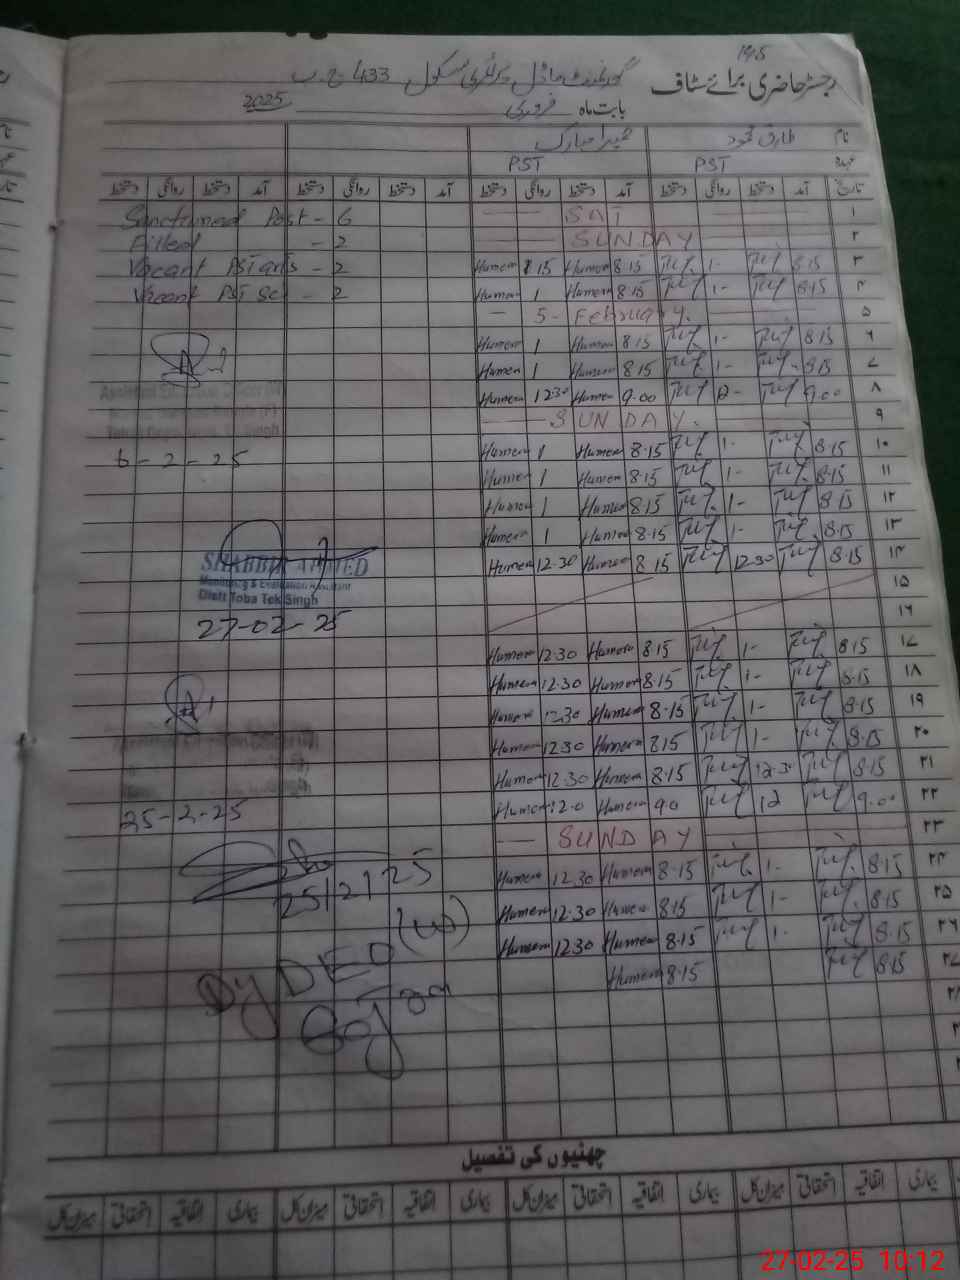 195
رجسٹر حاضری برائے سٹاف گورنمنٹ ماڈل پرائمری سکول 433 ج۔ب
بابت ماہ فروری 2025
نام طارق محمود حمیرا مبارک
عہدہ PST PST
تاریخ آمد دستخط روانگی دستخط آمد دستخط روانگی دستخط آمد دستخط روانگی دستخط آمد دستخط روانگی دستخط
۱ SAT Sanctioned Post - 6
۲ SUNDAY Filled - 2
۳ 8.15 1- 8.15 Humera 8.15 Humera Vacant PST arts - 2
۴ 8.15 1- 8.15 Humera 1 Humera Vacant PST Sc - 2
۵ 5 - February.
۶ 8.15 1- 8.15 Humera 1 Humera
۷ 8.15 1- 8.15 Humera 1 Humera
۸ 9.00 12- 9.00 Humera 12.30 Humera
۹ SUNDAY.
۱۰ 8.15 1- 8.15 Humera 1 Humera 6-2-25
۱۱ 8.15 1- 8.15 Humera 1 Humera
۱۲ 8.15 1- 8.15 Humera 1 Humera
۱۳ 8.15 1- 8.15 Humera 1 Humera
۱۴ 8.15 12.30 8.15 Humera 12.30 Humera
SHABBIR AHMED
Monitoring & Evaluation Assistant
Distt Toba Tek Singh
27-02-25
۱۵
۱۶
۱۷ 8.15 1- 8.15 Humera 12.30 Humera
۱۸ 8.15 1- 8.15 Humera 12.30 Humera
۱۹ 8.15 1- 8.15 Humera 12.30 Humera
۲۰ 8.15 1- 8.15 Humera 12.30 Humera
۲۱ 8.15 12.30 8.15 Humera 12.30 Humera
۲۲ 9.00 12 9.0 Humera 12.0 Humera 25-2-25
۲۳ SUNDAY
۲۴ 8.15 1- 8.15 Humera 12.30 Humera
25/2/25
۲۵ 8.15 1- 8.15 Humera 12.30 Humera
۲۶ 8.15 1- 8.15 Humera 12.30 Humera
Dy DEO (W)
Gojra
۲۷ 8.15 8.15 Humera
۲۸
چھٹیوں کی تفصیل
بیماری اتفاقیہ استحقاقی میزان کل بیماری اتفاقیہ استحقاقی میزان کل بیماری اتفاقیہ استحقاقی میزان کل بیماری اتفاقیہ استحقاقی میزان کل
27-02-25 10:12